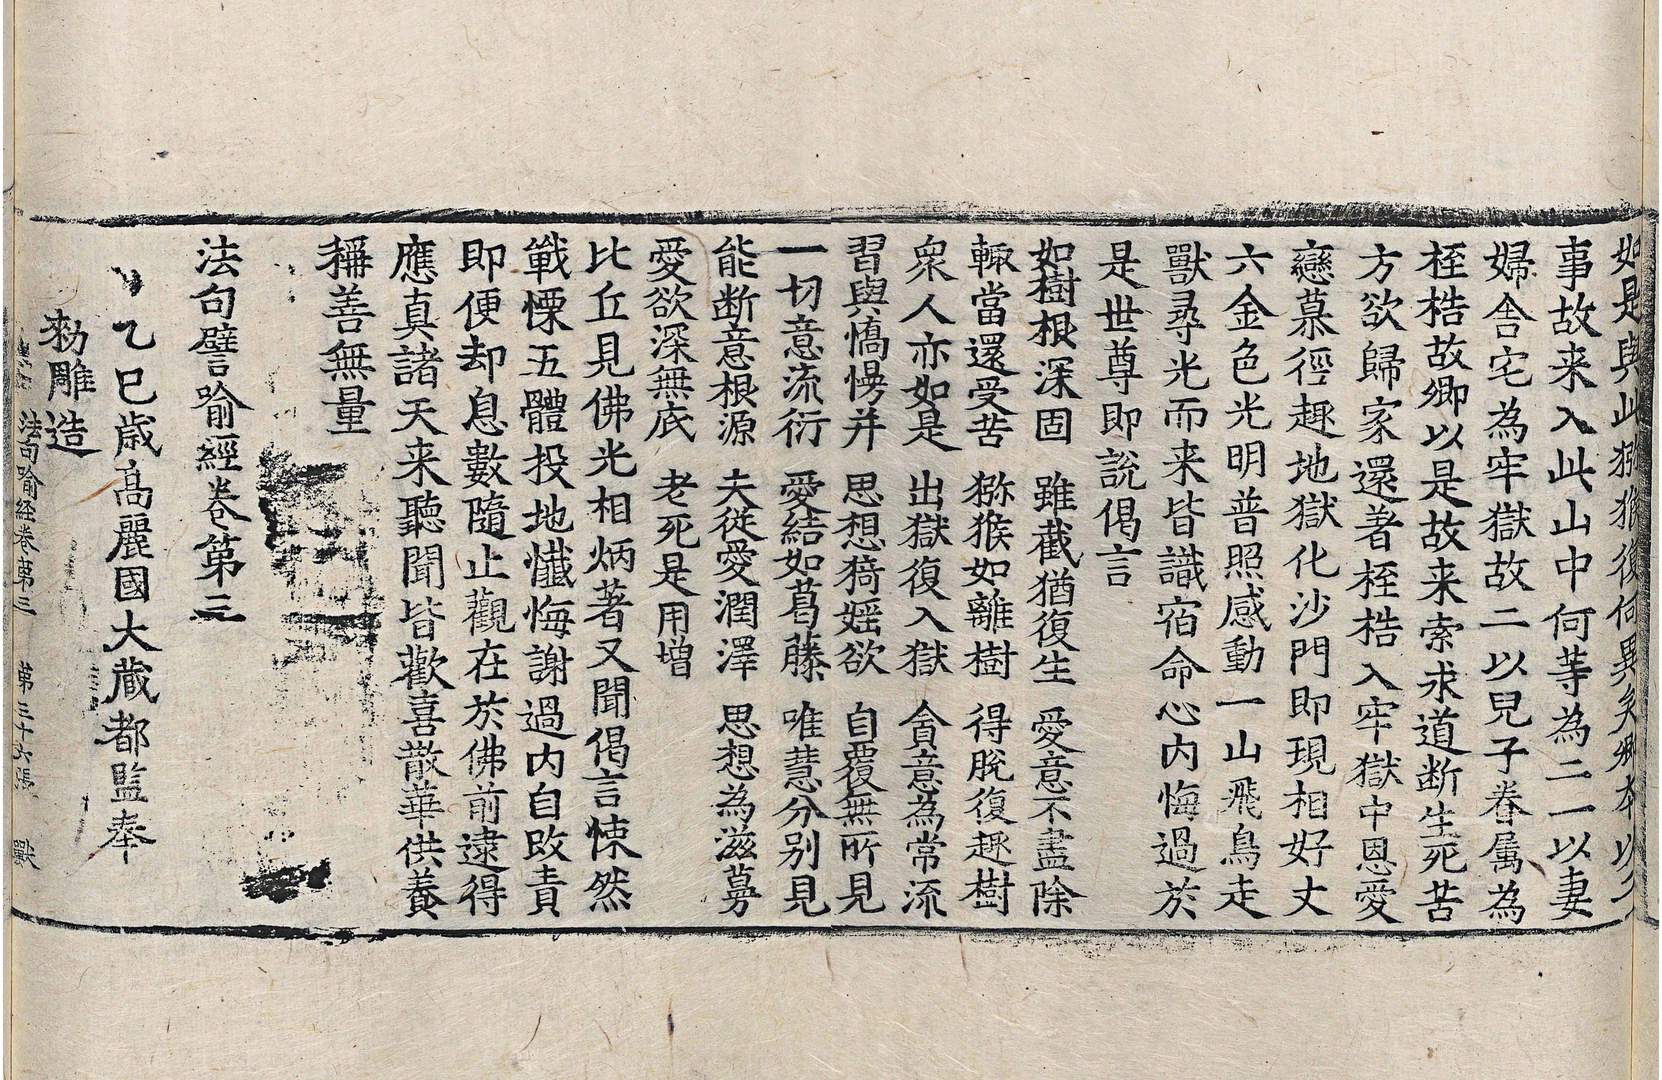 如是與此猕猴復何異矣卿本以三
事故来入此山中何等為三一以妻
婦舍宅為牢獄故二以兒子眷属為
桎梏故卿以是故来索求道断生死苦
方欲歸家還著桎梏入牢獄中恩愛
戀慕徑趣地獄化沙門即現相好丈
六金色光明普照感動一山飛鳥走
獸尋光而来皆識宿命心内悔過於
是世尊即說偈言
如樹根深固 雖截猶復生 愛意不盡除
輙當還受苦 猕猴如離樹 得脫復趣樹
衆人亦如是 出獄復入獄 貪意為常流
習與憍慢并 思想猗婬欲 自覆無所見
一切意流衍 愛結如葛藤 唯慧分別見
能断意根源 夫從愛潤澤 思想為滋蔓
愛欲深無底 老死是用增
比丘見佛光相炳著又聞偈言悚然
戰慄五體投地懺悔謝過内自改責
即便却息數隨止觀在於佛前逮得
應真諸天来聽聞皆歡喜散華供養
稱善無量
法句譬喻經卷第三
乙巳歳高麗國大藏都監奉
勑雕造
法句喻経卷第三 第三十六張 獸